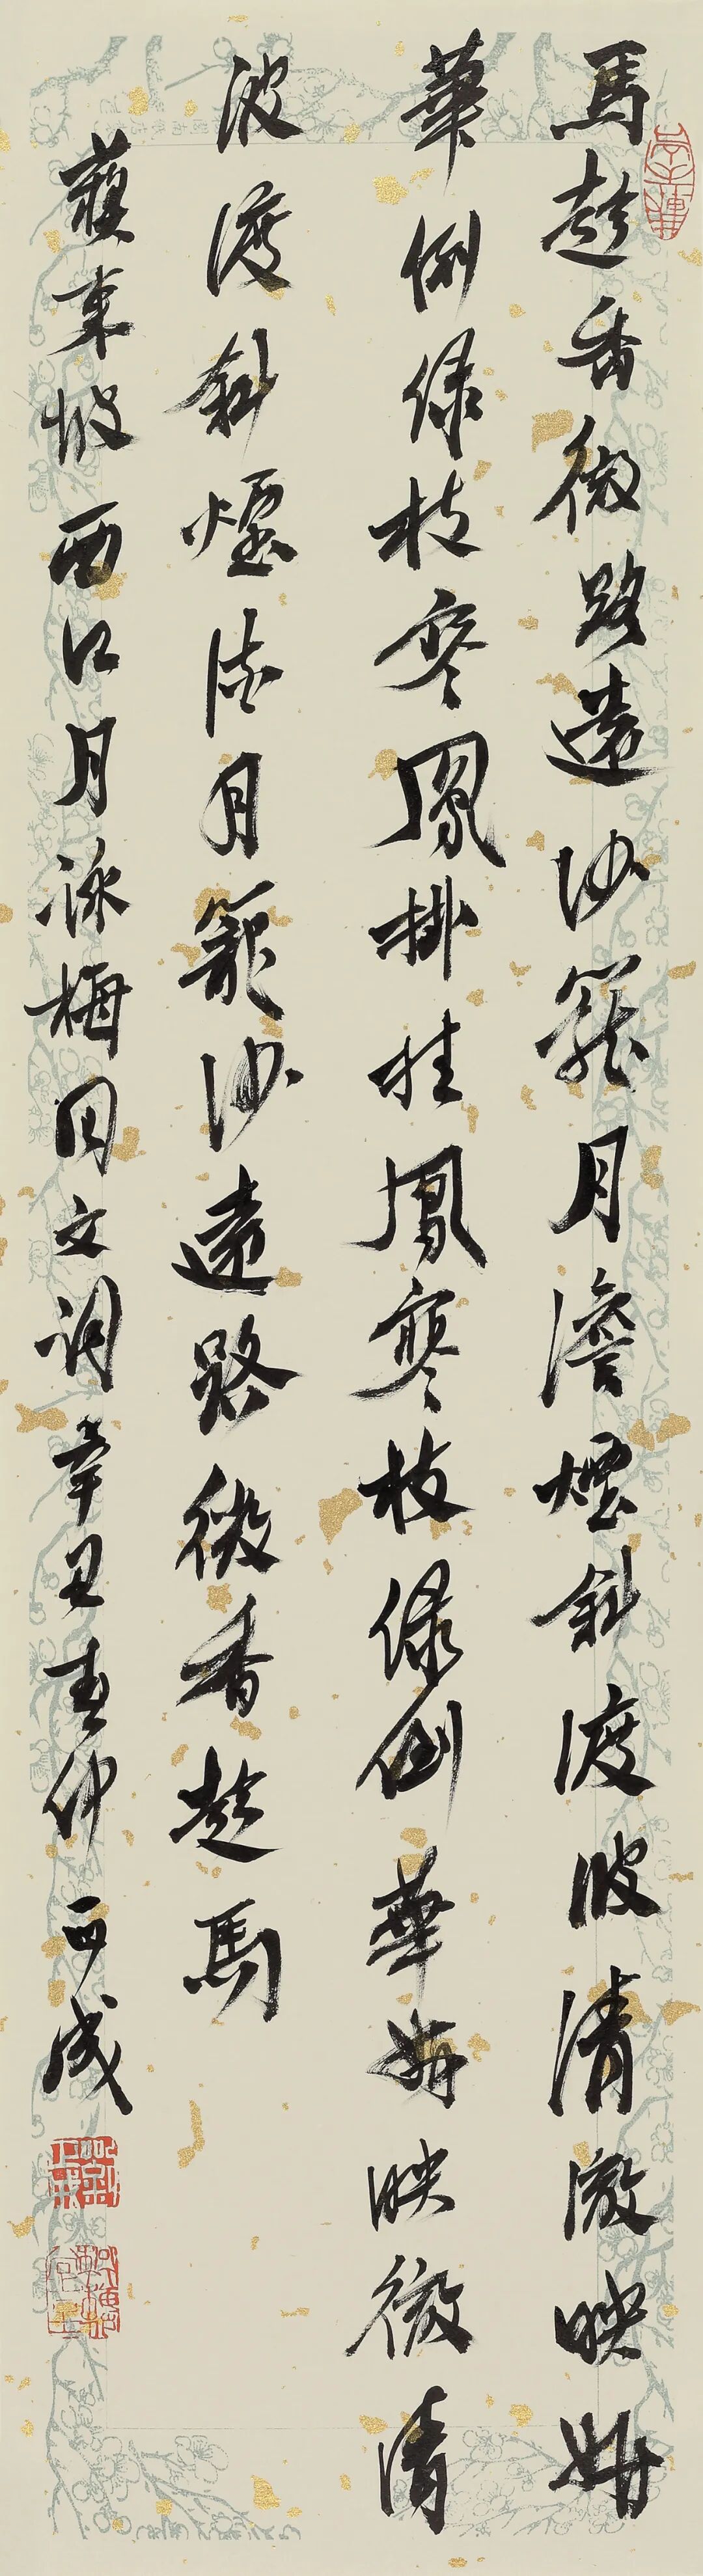 馬趁香微路遠沙籠月澹煙斜渡波清澈映妍
華倒綠枝寒鳳掛挂鳳寒枝綠倒華妍映徹清
波渡斜煙淡月籠沙遠路微香趁馬
蘇東坡西江月詠梅回文詞辛丑春仲西成